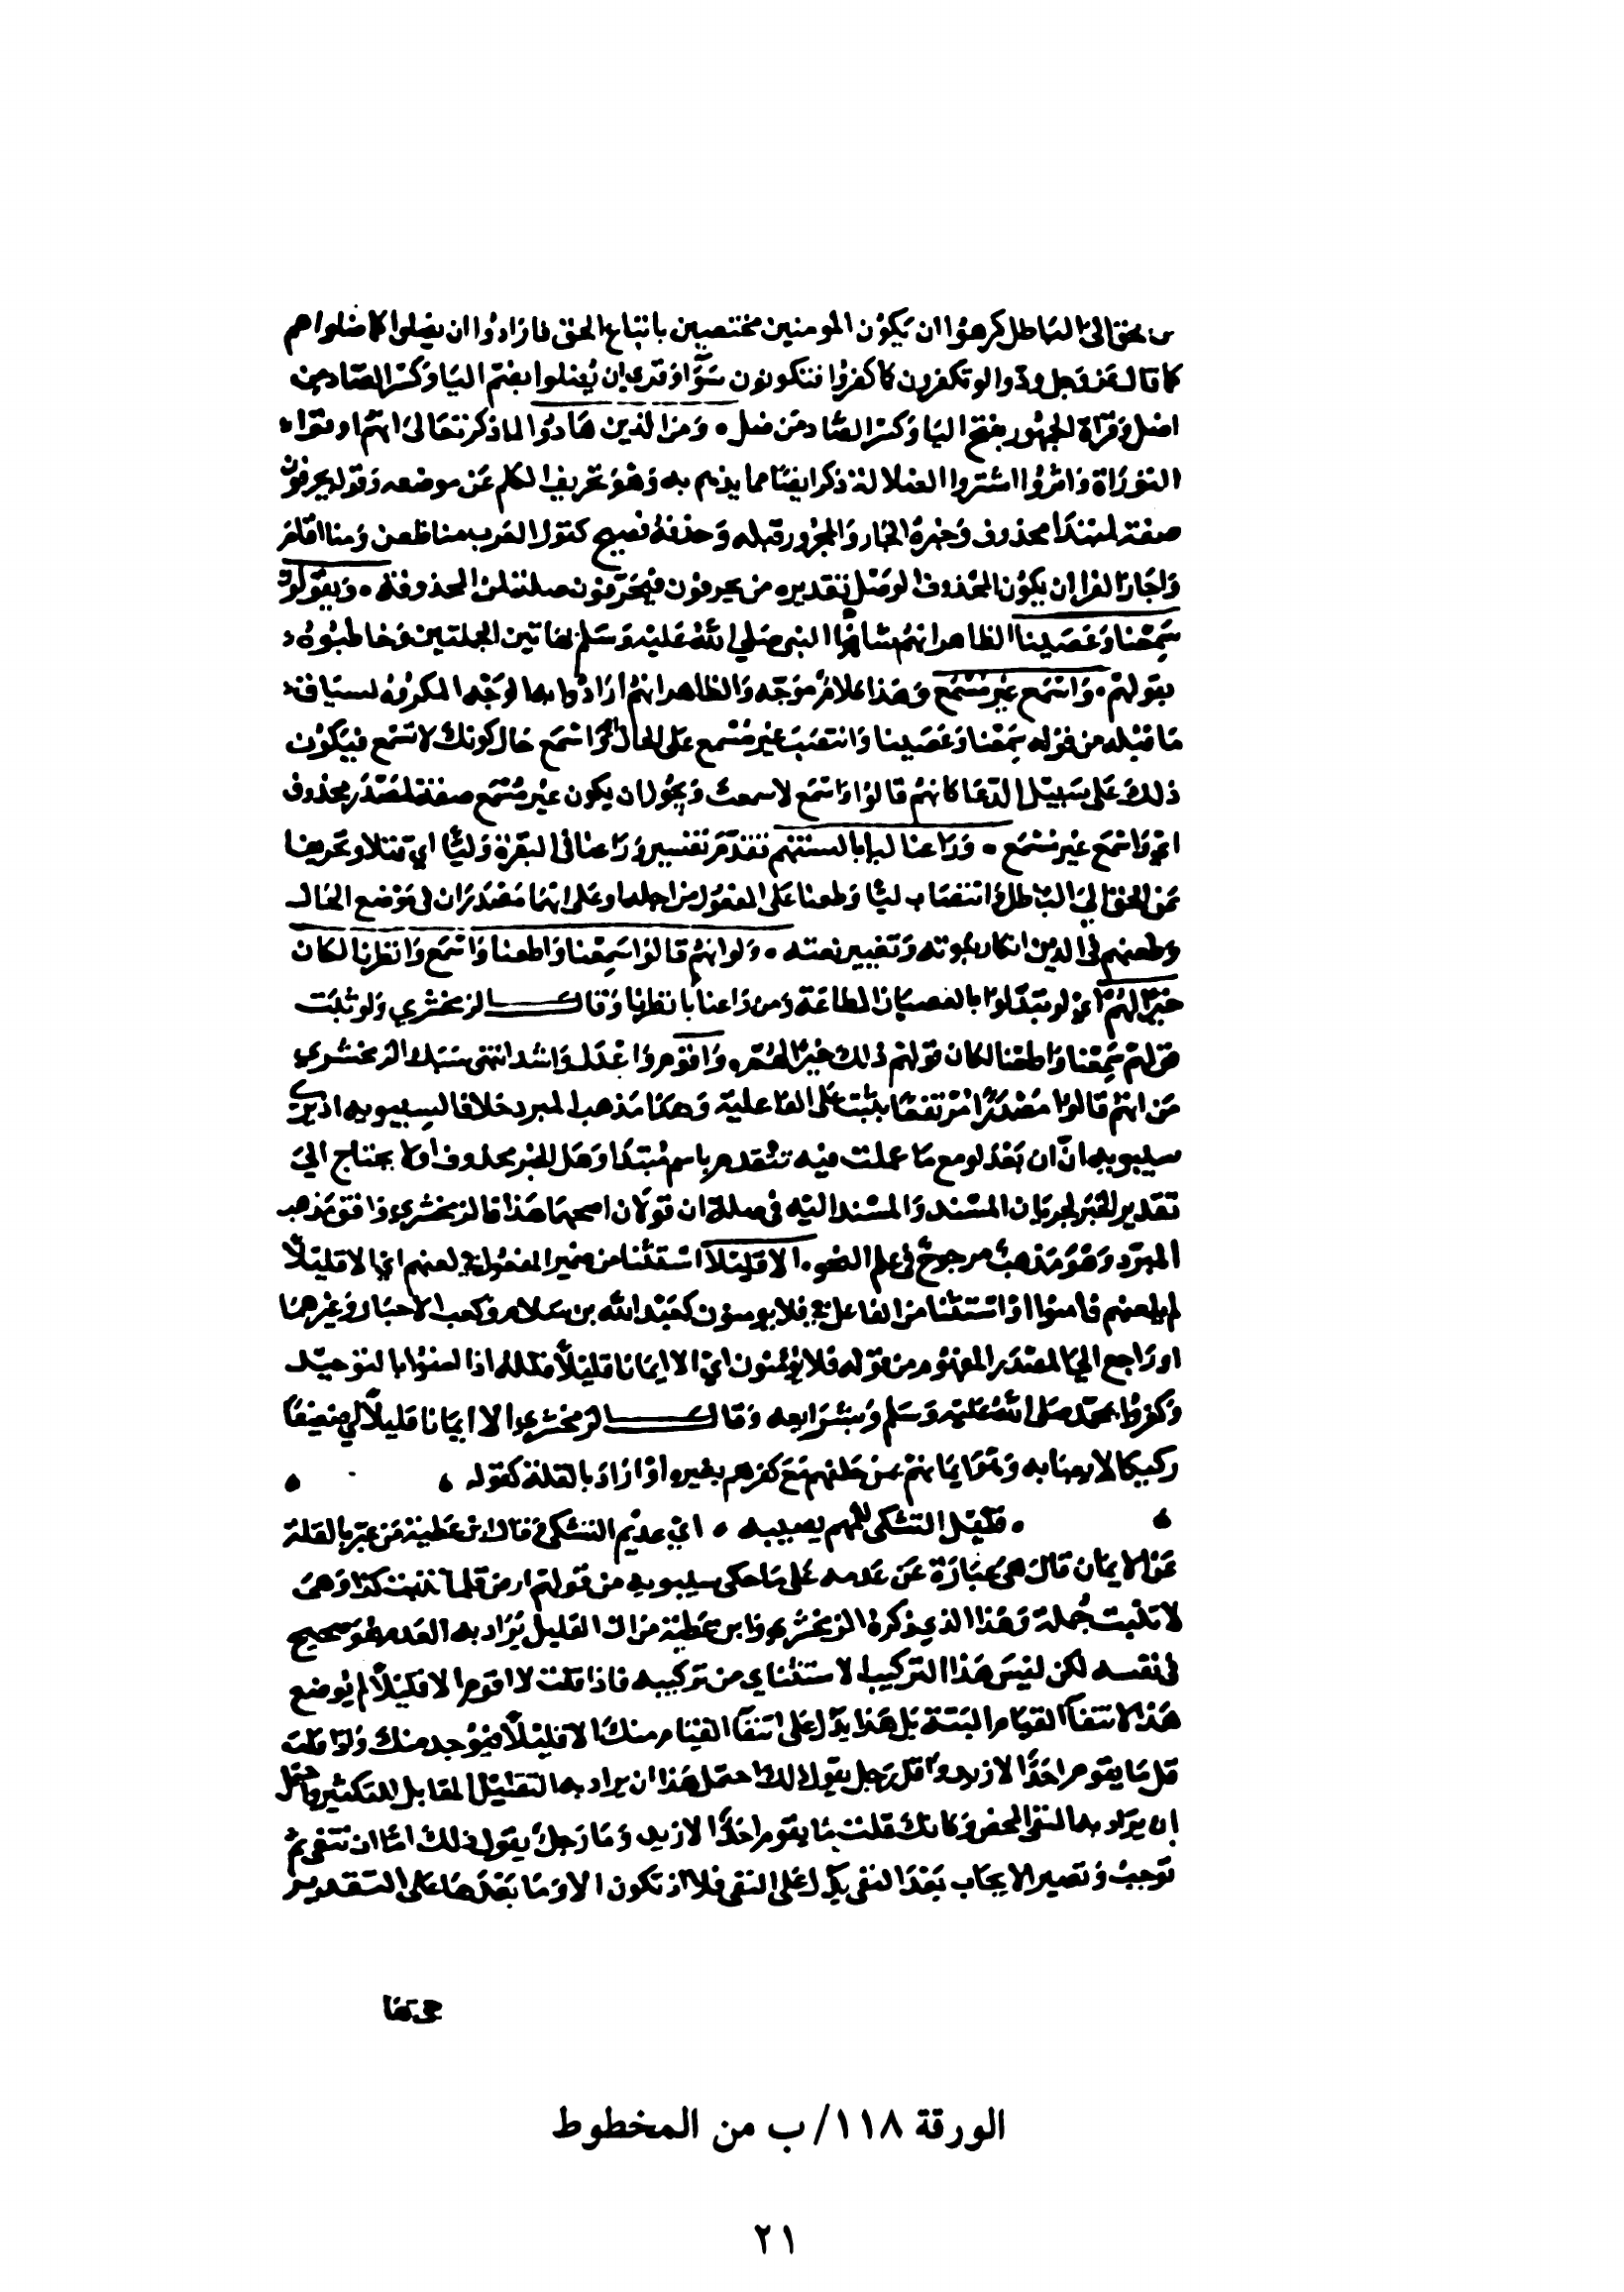 الحق الى الباطل كرهوا ان يكون المومنين مختصين باتباع الحق فارادوا ان يضلوا كما ضلوا هم
كما قال عز وجل ودوا لو تكفرون كما كفروا فتكونون سواء وقرى ان يضلوا بضم اليا وكسر الضاد من
اضل وقراة الجمهور بفتح اليا وكسر الضاد من ضل ۰ ومن الذين هادوا لما ذكر تعالى انهم اوتوا
التوراة وانهم اشتروا الضلالة ذكر ايضا مما يذمهم به وهو تحريف الكلم عن موضعه وقوله يحرفون
صفة لمبتدا محذوف وخبره الجار والمجرور قبله وحذفه فصيح كقول العرب منا ظعن ومنا اقام
واجاز الفرا ان يكون المحذوف الموصول تقديره من يحرفون فيحرفون صلة لمن المحذوفة ۰ ويقولون
سمعنا وعصينا الظاهر انهم شافهوا النبي صلى الله عليه وسلم بهاتين الجملتين وخاطبوه
بقولهم ۰ واسمع غير مسمع وهذا كلام موجه والظاهر انهم ارادوا به الوجه المكروه لسياق
ما قبله من قوله سمعنا وعصينا وانتصب غير مسمع على الحال اي واسمع حال كونك لا تسمع فيكون
ذلك على سبيل الدعا كانهم قالوا واسمع لا سمعت ويجوز ان يكون غير مسمع صفة لمصدر محذوف
اي واسمع غير مسمع ۰ وراعنا ليا بالسنتهم تقدم تفسير وراعنا في البقرة وليا اي فتلا وتحريفا
عن الحق الى الباطل وانتصاب ليا وطعنا على المفعول من اجله او على انهما مصدران في موضع الحال
وطعنهم في الدين انكار نبوته وتغيير نعته ۰ ولو انهم قالوا سمعنا واطعنا واسمع وانظرنا لكان
خيرا لهم اي لو تبدلوا بالعصيان الطاعة ومن راعنا بانظرنا وقال الزمخشري ولو ثبت
قولهم سمعنا واطعنا لكان قولهم ذلك خيرا لهم ۰ واقوم واعدل واشد انتهى سبك الزمخشري
من انهم قالوا مصدرا مرتفعا بثبت على الفاعلية وهكذا مذهب المبرد خلافا لسيبويه اذ يرى
سيبويه ان ان بعد لو مع ما عملت فيه تتقدر باسم مبتدا وهل الخبر محذوف او لا يحتاج الى
تقدير الخبر لجريان المسند والمسند اليه في صلة ان قولان اصحهما هذا فالزمخشري وافق مذهب
المبرد وهو مذهب مرجوح في علم النحو ۰ الا قليلا استثنا من ضمير المفعول في لعنهم اي الا قليلا
لم يلعنهم فامنوا او استثنا من الفاعل في فلا يومنون كعبد الله بن سلام وكعب الاحبار وغيرهما
او راجع الى المصدر المفهوم من قوله فلا يومنون اي الا ايمانا قليلا قلله اذ امنوا بالتوحيد
وكفروا بمحمد صلى الله عليه وسلم وبشرايعه وقال الزمخشري الا ايمانا قليلا اي ضعيفا
ركيكا لا يعبا به وهو ايمانهم بمن خلقهم مع كفرهم بغيره او اراد بالقلة كقوله
۰ قليل التشكي للمهم يصيبه ۰ اي عديم التشكي وقال ابن عطية من عبر بالقلة
عن الايمان قال هي عبارة عن عدمه على ما حكى سيبويه من قولهم ارض قلما تنبت كذا وهي
لا تنبت جملة وهذا الذي ذكره الزمخشري وابن عطية من ان القليل يراد به العدم هو صحيح
في نفسه لكن ليس هذا التركيب الاستثنائي من تركيبه فاذا قلت لا اقوم الا قليلا لم يوضع
هذا لانتفا القيام البتة بل هذا يدل على انتفا القيام منك الا قليلا فيوجد منك واذا قلت
قل ما يقوم احد الا زيد واقل رجل يقول ذلك احتمل هذا ان يراد به التقليل المقابل للتكثير واحتمل
ان يراد به النفي المحض وكانك قلت ما يقوم احد الا زيد وما رجل يقول ذلك اما ان تنفي ثم
توجب وتصير الايجاب بعد النفي يدل على النفي فلا اذ تكون الا وما بعدها على التقدير
الورقة ١١٨/ب من المخطوط
٢١